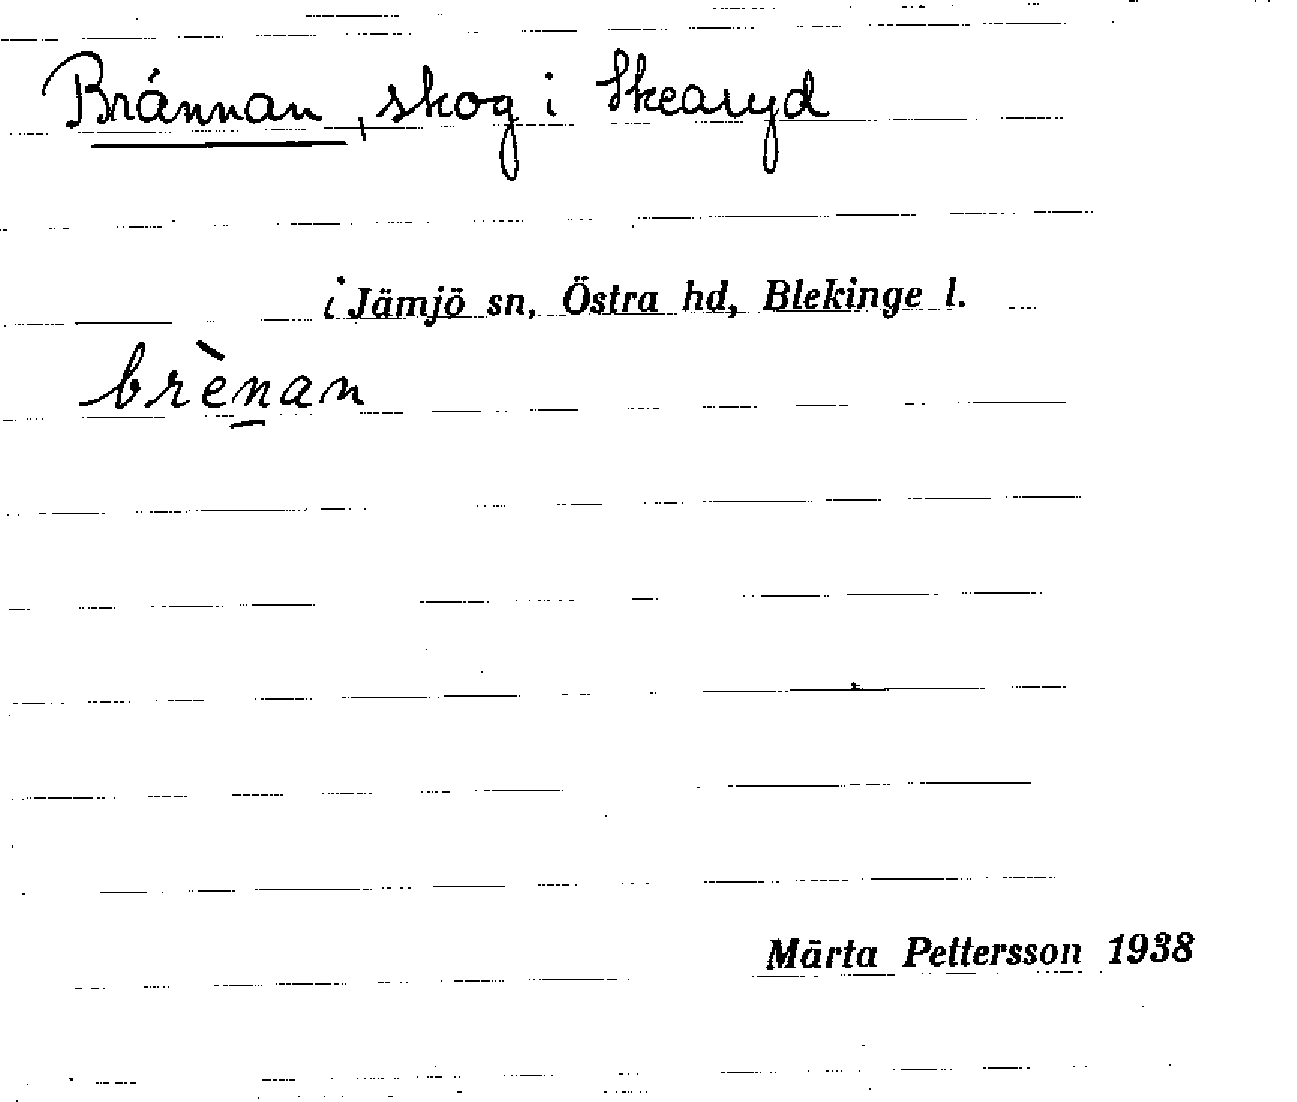 Bránnan, skog i Skearyd
i Jämjö sn, Östra hd, Blekinge l.
brènan
Märta Pettersson 1938